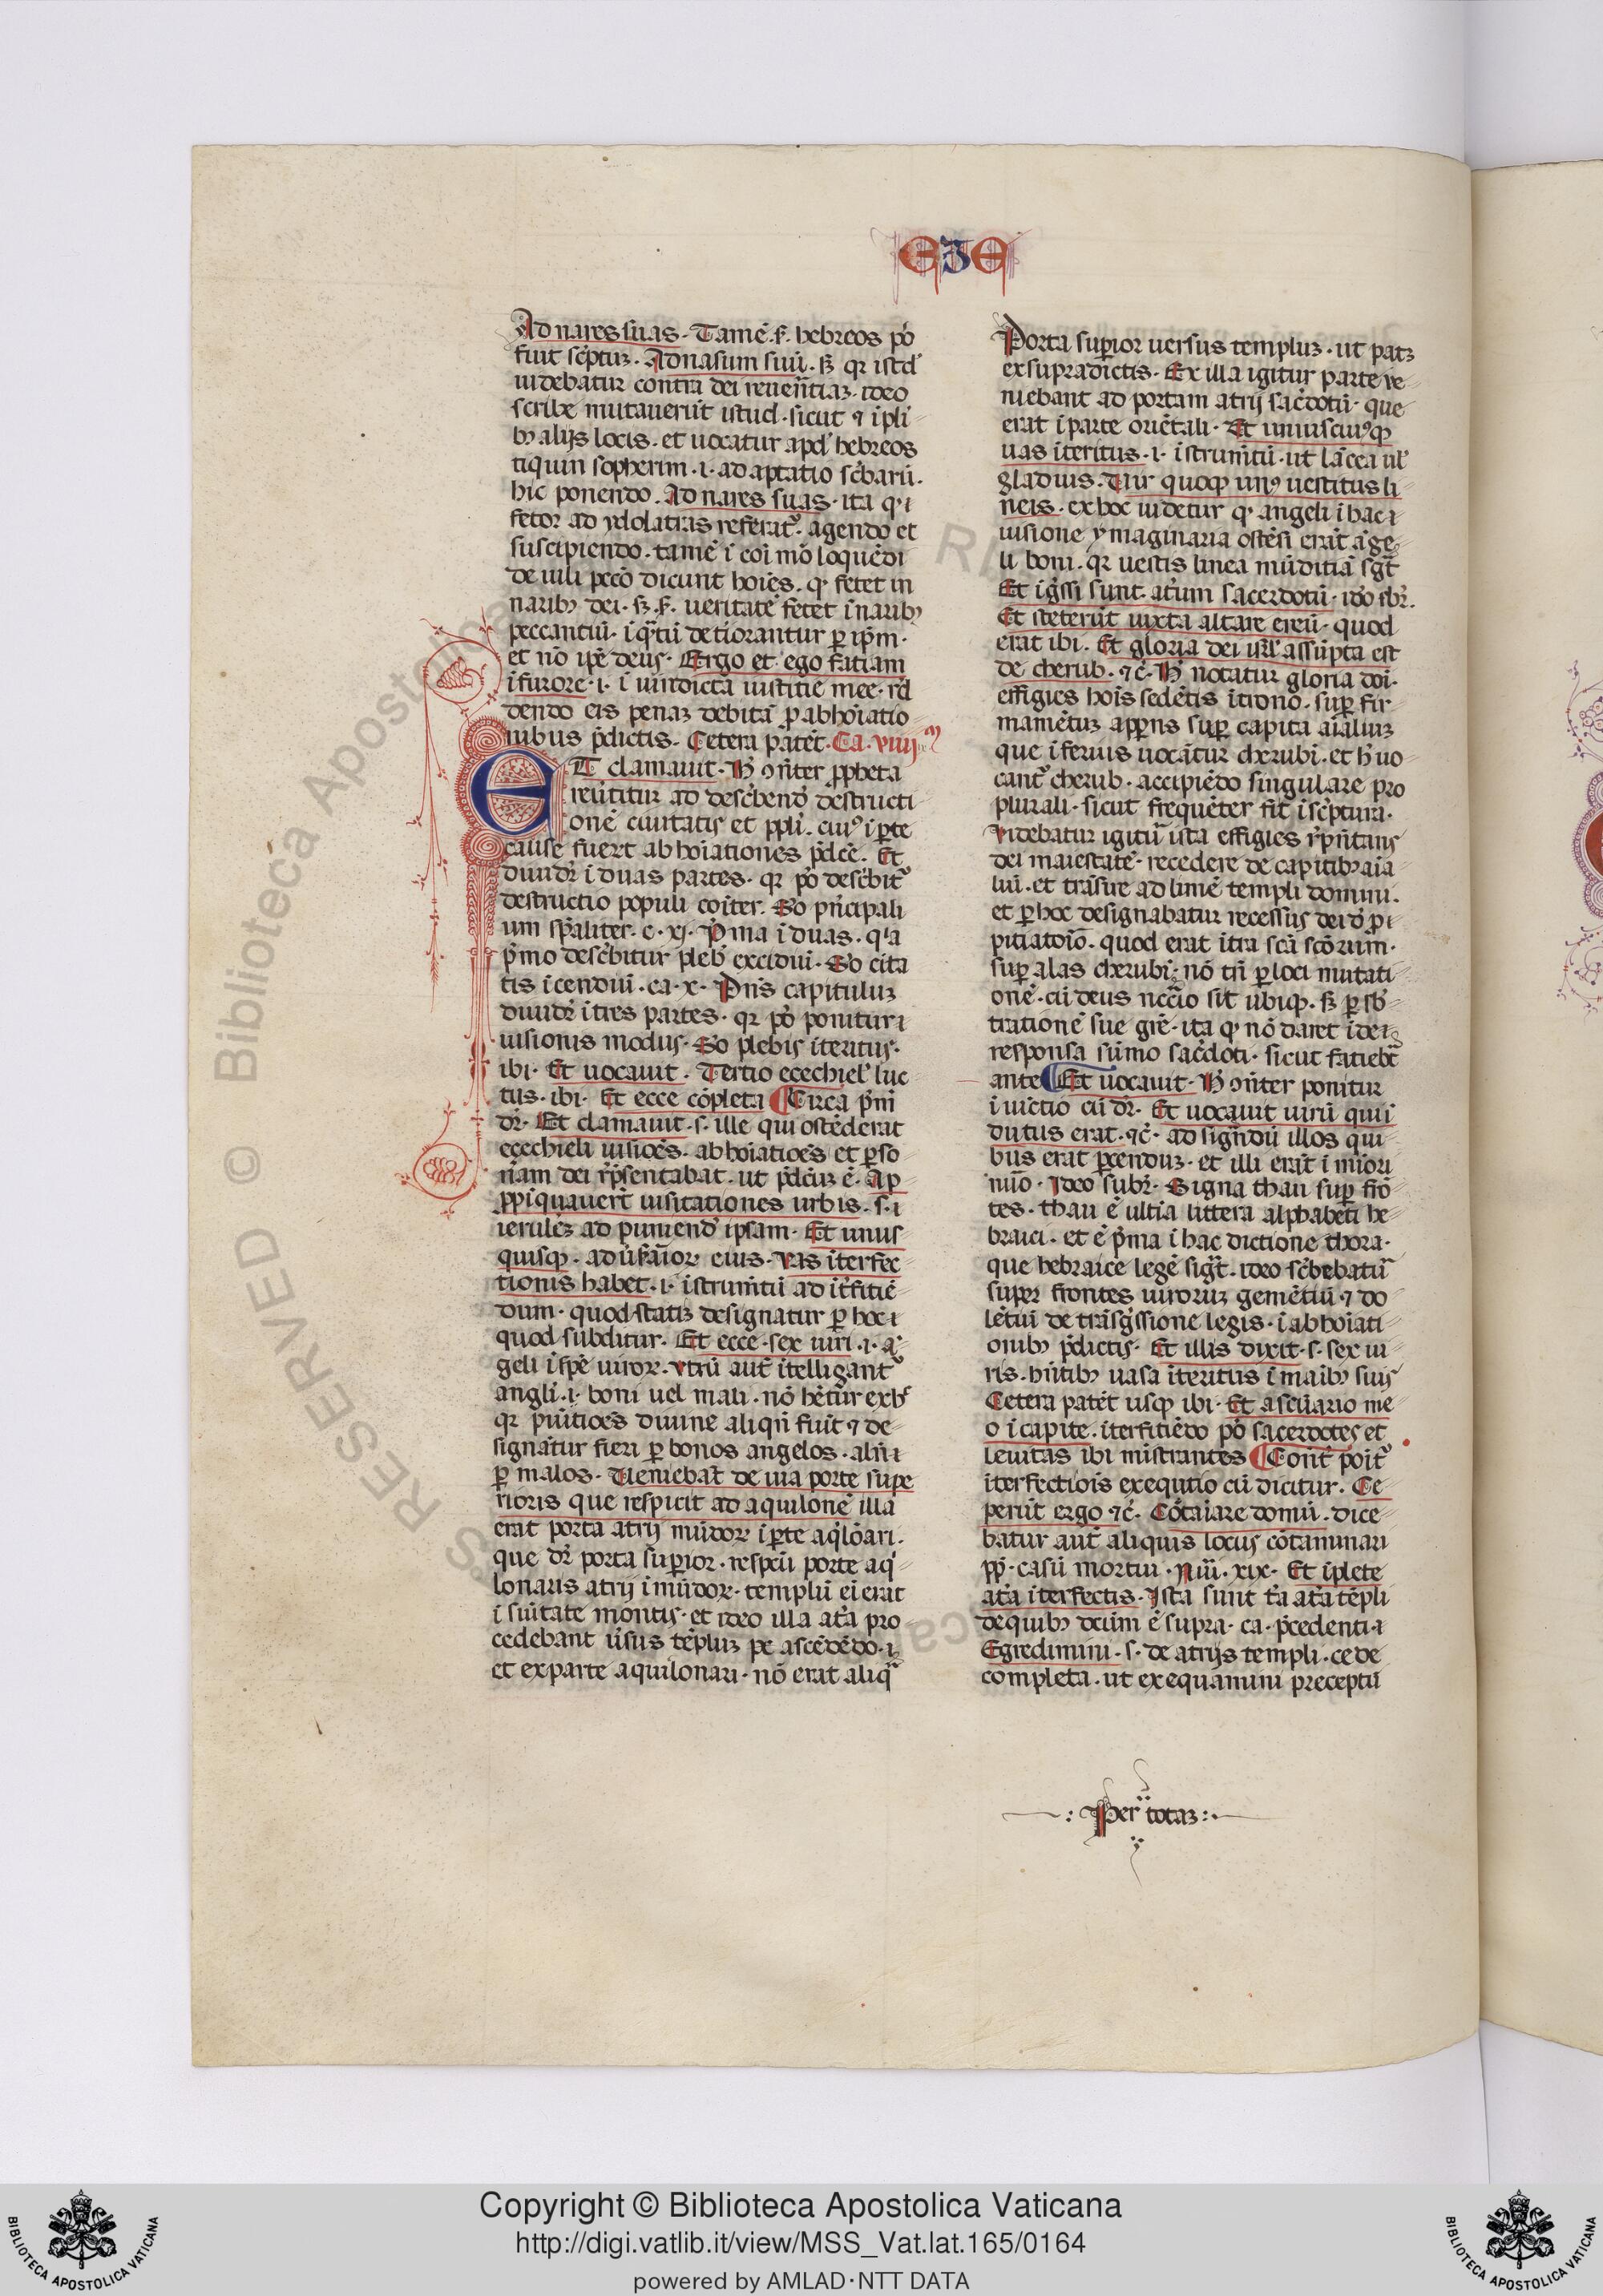 EZE
Ad nares suas. Tamē .s. hebreos p͛o
fuit sc͛ptuꝫ. Ad nasum suū. sꝫ qr istd͛
uidebatur contra dei reuen͛tiaꝫ. ideo
scribe mutauerūt istud. sicut ⁊ i pli
bꝫ alijs locis. et uocatur apd͛ hebreos
tiquin sopherim .i. adaptatio sc͛barū.
hic ponendo. Ad nares suas. ita q͛ i
fetor ad ydolatras referat᷑. agendo et
suscipiendo. tamē i coi mō loquēdi
de uili pecō dicunt hoiēs. q͛ fetet in
naribꝫ dei. sꝫ .s. ueritatē fetet i naribꝫ
peccantiū. i q͛tū detiorantur ꝑ ip͛m.
et nō ip̄e deus. Ergo et ego fatiam
i furore .i. i uindicta iustitie mee. rd͛
dendo eis penaꝫ debitā ꝓ abhoīatio
nibus p͛dictis. Cetera patēt. Ca. viiijͫ
ET clamauit. H͛ ↄn͛ter ꝓpheta
reūtitur ad desc͛bend͛ destructi
onē ciuitatis et ppli͛. cuiꝰ i ꝑte
cause fuer͛t abhoīationes p͛dc͛e. Et
diuidr͛ i duas partes. qr p͛o desc͛bit᷑
destructio populi cōit͛er. So p͛ncipali
um sp͛aliter. c. xj. P͛ma i duas. q͛a
p͛mo desc͛bitur pleb͛ excidiū. So cita
tis icendiū. ca. x. Pn͛s capituluꝫ
diuidr͛ i tres partes. qr p͛o ponitur i
uisionis modus. So plebis iteritus.
ibi. Et uocauit. Tertio ecechiel͛ luc
tus. ibi. Et ecce cōpleta ¶ Circa p͛m͛
dr͛. Et clamauit .s. ille qui ostēderat
ecechieli uisiōes. abhoīatiōes et ꝑso
nam dei rp͛sentabat. ut p͛dc͛uꝫ ē. Ap
ꝓpiquauer͛t uisitationes urbis .s. i
ierul͛eꝫ ad puniend͛ ipsam. Et unus
quisqꝫ. aduīsarior͛ eius. vas iterfec
tionis habet .i. istrum͛tū ad it͛fitiē
dum. quod statiꝫ designatur ꝑ hoc i
quod subditur. Et ecce sex uiri .i. ā
geli i spē uiror͛. vtrū aut͛ itelligant᷑
angli͛ .i. boni uel mali. nō hētur ex h͛
qr pūitiōes diuine aliqn͛ fiūt ⁊ de
signātur fieri ꝑ bonos angelos. aln͛ i
ꝑ malos. Ueniebāt de uia porte supe
rioris que respicit ad aquilonē illa
erat porta atrij mūdor͛ i ꝑte aq͛lōari.
que dr͛ porta suꝑior. respc͛u porte aq͛
lonaris atrij imūdor͛. templū ei erat
i sūitate montis. et ideo illa at͛a pro
cedebant ūsus tēpluꝫ pe ascēdēdo. i
et ex parte aquilonari. nō erat aliq᷑
Porta suꝑior uersus templuꝫ. ut patꝫ
ex supradictis. Ex illa igitur parte ve
niebant ad portam atrij sac͛dotū. que
erat i parte oriētali. Et uniuscuiꝰqꝫ
uas iteritus .i. istrum͛tū. ut lācea ul͛
gladius. Uir quoqꝫ unꝰ uestitus li
neis. ex hoc uidetur q͛ angeli i hac i
uisione ymaginaria ostēsi erāt āge
li boni. qr uestis linea mūditiā sg͛t
Et ig͛ssi sunt. at͛um sacerdotū. idō sbr͛.
Et steterūt iuxta altare ereū. quod
erat ibi. Et gloria dei isrl͛ assūpta est
de cherub. ⁊c͛. H͛ notatur gloria dn͛i.
effigies hoīs sedētis i trono. suꝑ fir
mamētuꝫ apꝑns suꝑ capita aīaliuꝫ
que i ferius uocātur cherubī. et h͛ uo
cant᷑ cherub. accipiēdo singulare pro
plurali. sicut frequēter fit i sc͛ptura.
videbatur igitu᷑ ista effigies rp͛n͛tans
dei maiestatē. recedere de capitibꝫ aīa
liū. et trāsire ad limē templi domini.
et ꝑ hoc designabatur recessus dei d͛ ꝓpi
pitiatoīo. quod erat itra scā scōrum.
suꝑ alas cherubī. nō tn͛ ꝑ loci mutati
onē. cū deus ncc͛io sit ubiqꝫ. sꝫ ꝑ sb͛
tractionē sue gr͛e. ita q͛ nō daret ī dei
responsa sūmo sac͛doti. sicut fatieb͛t
ante ¶ Et uocauit. H͛ ↄn͛ter ponitur
i uictio cū dr͛. Et uocauit uirū qui i
dutus erat. ⁊c͛. ad sign͛dū illos qui
bus erat ꝑcenduꝫ. et illi erāt i mīori
nūo. Ideo subr͛. Signa thau suꝑ frō
tes. thau ē ultīa littera alphabeti he
braici. et ē p͛ma i hac dictione thora.
que hebraice legē sig͛t. ideo sc͛bebatu᷑
super frontes uiroruꝫ gemētiū ⁊ do
lētiū de trāsg͛ssione legis. i abhoīati
onibꝫ p͛dictis. Et illis dixit .s. sex ui
ris. hn͛tibꝫ uasa iteritus i maibꝫ suis
Cetera patēt usqꝫ ibi. Et a scūario me
o icapite. iterfitiēdo p͛o sacerdotes et
leuitas ibi mīstrantes ¶ Con͛t͛ poīt᷑
iterfectiōis exequtio cū dicitur. Ce
perūt ergo ⁊c͛. Cōtaīare domū. dice
batur aut͛ aliquis locus cōtaminari
pp͛. casū mortui. Nūi. xix. Et iplete
at͛a iterfectis. Ista sunt t͛a at͛a tēpli
de quibꝫ dc͛um ē supra. ca. p͛cedenti. i
Egredimini .s. de atrijs templi. cede
completa. ut exequamini preceptū
Per totaꝫ
Copyright © Biblioteca Apostolica Vaticana
http://digi.vatlib.it/view/MSS_Vat.lat.165/0164
powered by AMLAD·NTT DATA
BIBLIOTECA APOSTOLICA VATICANA
BIBLIOTECA APOSTOLICA VATICANA